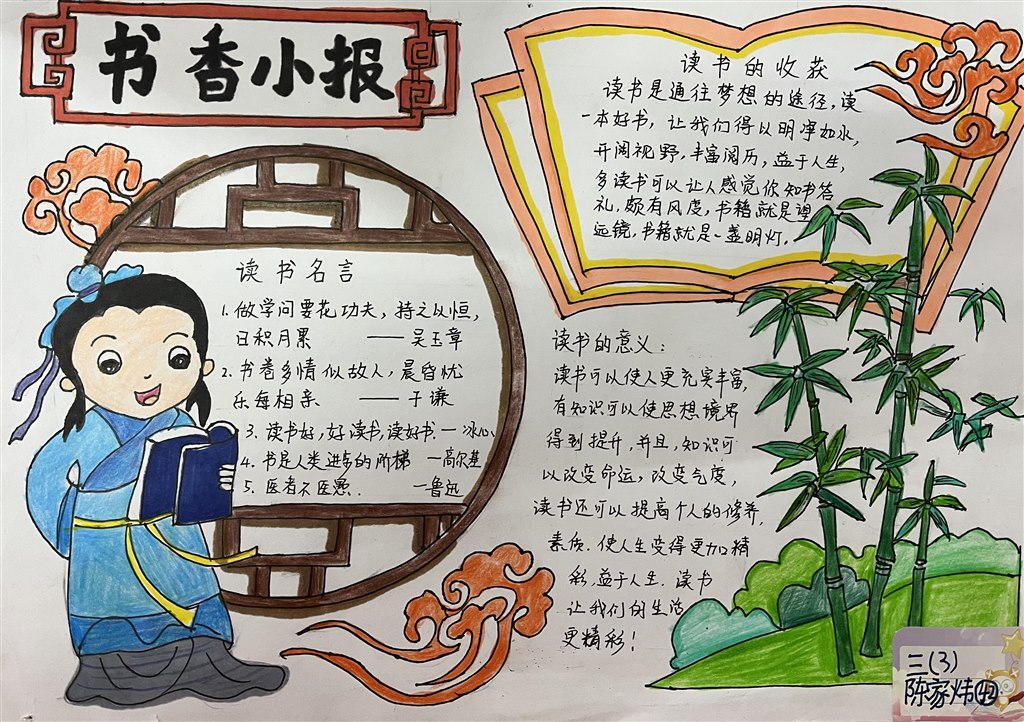 书香小报
读书名言
1.做学问要花功夫，持之以恒，
日积月累 ——吴玉章
2.书卷多情似故人，晨昏忧
乐每相亲 ——于谦
3.读书好，好读书，读好书.—冰心
4.书是人类进步的阶梯 —高尔基
5.医者不医愚. —鲁迅
读书的收获
读书是通往梦想的途径，读
一本好书，让我们得以明净如水，
开阔视野，丰富阅历，益于人生，
多读书可以让人感觉你知书答
礼，颇有风度，书籍就是望
远镜，书籍就是一盏明灯.
读书的意义：
读书可以使人更充实丰富，
有知识可以使思想境界
得到提升，并且，知识可
以改变命运，改变气度，
读书还可以提高个人的修养，
素质.使人生变得更加精
彩，益于人生.读书
让我们的生活
更精彩！
三(3)
陈家炜42